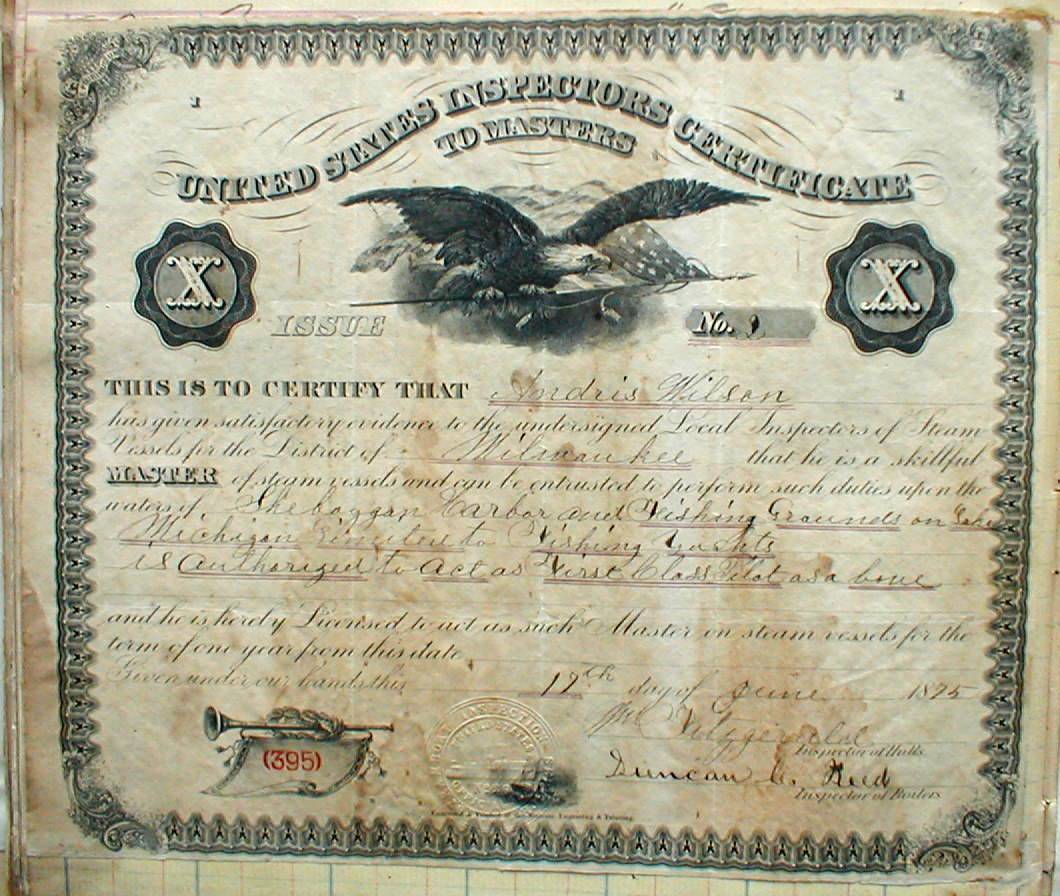 1 1
UNITED STATES INSPECTORS CERTIFICATE
TO MASTERS
X X
ISSUE No. 1
THIS IS TO CERTIFY THAT Andris Wilson
has given satisfactory evidence to the undersigned Local Inspectors of Steam
Vessels for the District of Milwaukee that he is a skillful
MASTER of steam vessels and can be entrusted to perform such duties upon the
waters of Sheboygan Harbor and Fishing Grounds on Lake
Michigan Limited to Fishing
is authorized to act as First Class Pilot as a bove
and he is hereby Licensed to act as such Master on steam vessels for the
term of one year from this date.
Given under our hands this 17th day of June 1875
Fitzgerald
Inspector of Hulls
(395)
Duncan C. Reed
Inspector of Boilers